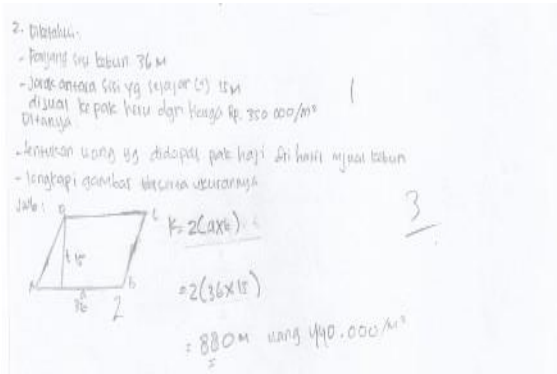 2. Diketahui:
- Panjang sisi kebun 36 M
- Jarak antara sisi yg sejajar (t) 15 M
dijual ke pak heru dgn harga Rp. 350 000/m²
Ditanya
- tentukan uang yg didapat pak haji dri hasil mjual kebun
- lengkapi gambar beserta ukurannya
Jwb:
K = 2(axt)
t 15
= 2(36x15)
a
36
2
= 880 M uang 440.000/m²
1
3